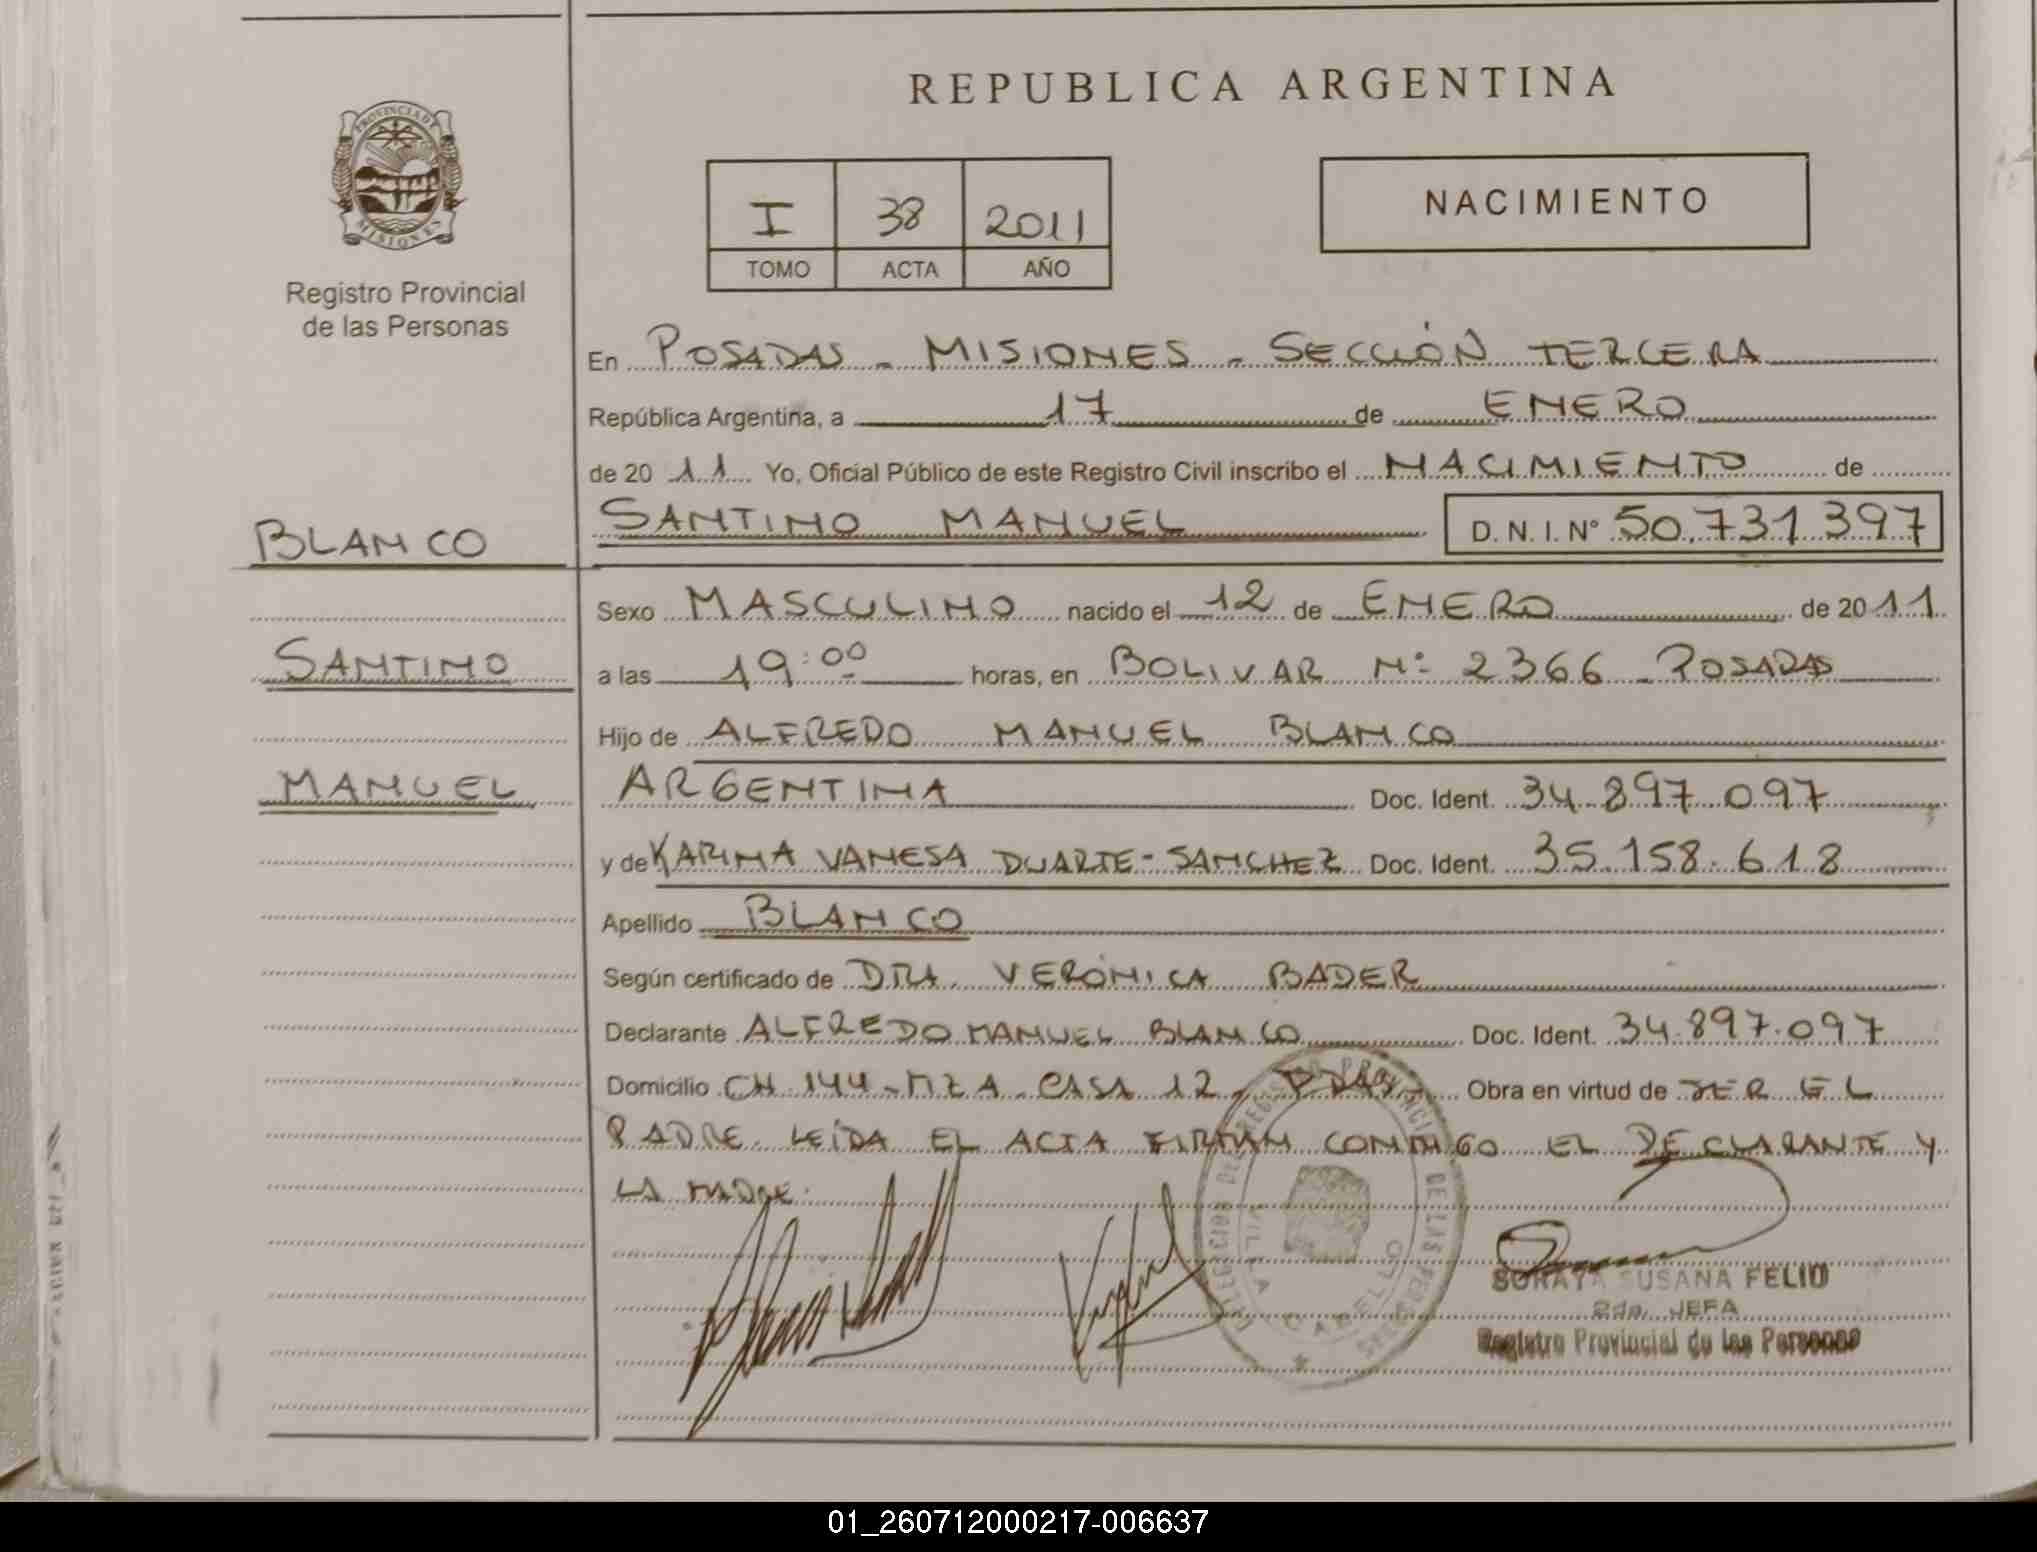 REPUBLICA ARGENTINA
PROVINCIA D
MISIONES
Registro Provincial
de las Personas
I 38 2011
TOMO ACTA AÑO
NACIMIENTO
En POSADAS - MISIONES - SECCIÓN TERCERA
República Argentina, a 17 de ENERO
de 20 11 Yo, Oficial Público de este Registro Civil inscribo el NACIMIENTO de
BLANCO
SANTINO MANUEL D. N. I. Nº 50.731.397
Sexo MASCULINO nacido el 12 de ENERO de 20 11
SANTINO
a las 19:00 horas, en BOLIVAR Nº 2366 - POSADAS
Hijo de ALFREDO MANUEL BLANCO
MANUEL
ARGENTINA Doc. Ident. 34.897.097
y de KARINA VANESA DUARTE - SANCHEZ Doc. Ident. 35.158.618
Apellido BLANCO
Según certificado de DRA. VERÓNICA BADER
Declarante ALFREDO MANUEL BLANCO Doc. Ident. 34.897.097
Domicilio CH. 144 - MZ A - CASA 12 - PDAS. Obra en virtud de SER EL
PADRE. LEÍDA EL ACTA FIRMAN CONMIGO EL DECLARANTE Y
LA MADRE.
VILLA CABELLO
SORAYA SUSANA FELIO
2da. JEFA
Registro Provincial de las Personas
01_260712000217-006637